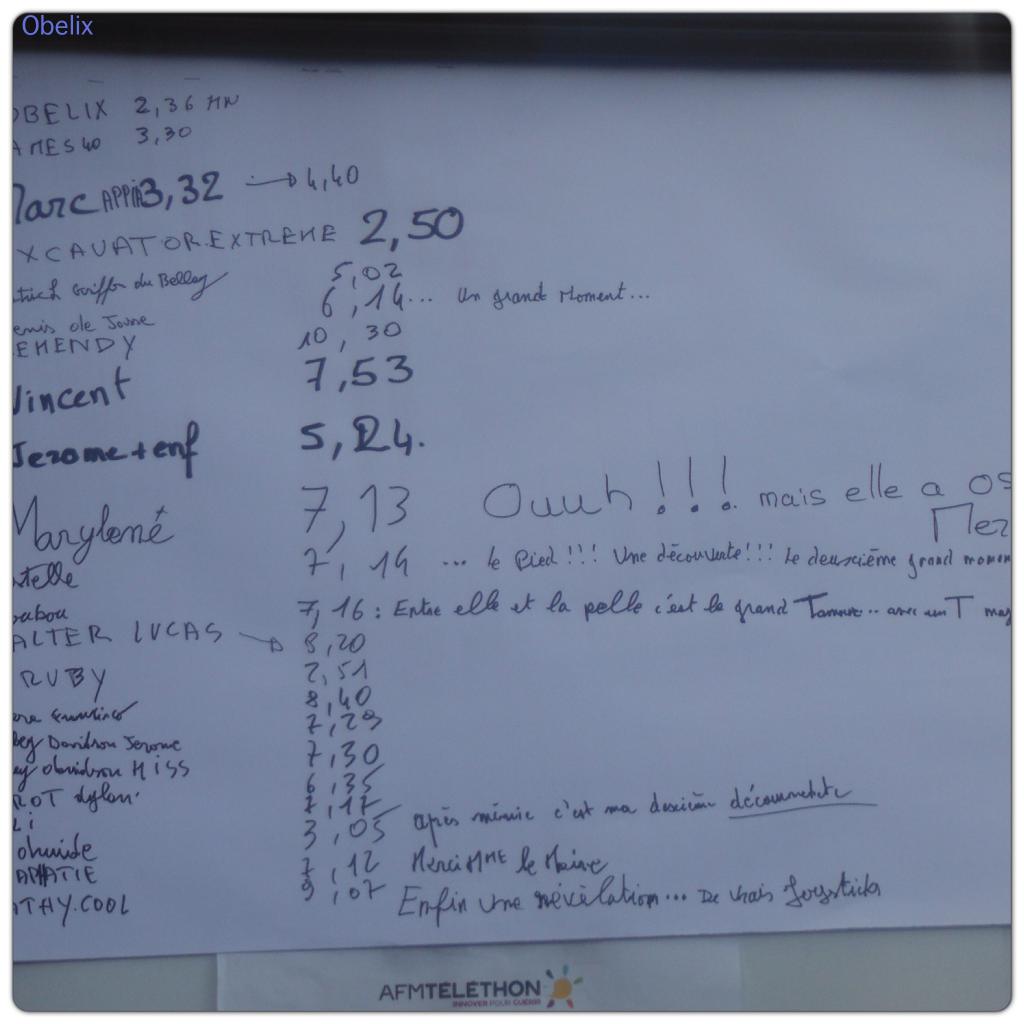 Obelix
OBELIX 2,36 MN
AMES40 3,30
Marc APPIA 3,32 → 4,40
XCAVATOR.EXTREME 2,50
du Belley 5,02
6,14... Un grand Moment...
enis de Joune
EHENDY 10,30
Vincent 7,53
Jerome + enf 5,24.
Maryloné 7,13 Ouuh!!!. mais elle a os
Mer
telle 7,14 ... le Pied!!! Une découverte!!! Le deuxième grand momen
oubou 7,16: Entre elle et la pelle c'est le grand ... avec un T maj
ALTER LUCAS → 8,20
RUBY 2,51
8,40
ey Davidson Jerome 7,29
ey davidson MISS 7,30
ROT dylan. 6,35
Li 7,17
après c'est ma deuxième
3,05
7,12 Merci MME le Maire
APHATIE
THAY.COOL 9,07 Enfin une révélation... De vrais Joysticks
AFMTÉLÉTHON
INNOVER POUR GUÉRIR